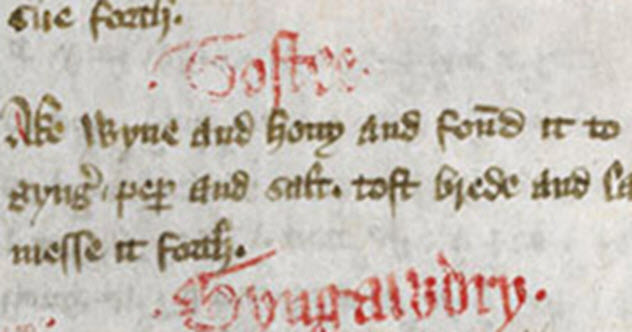 sue forth.
.Tostee.
Ake wyne and hony and foūd it to
gyngꝰ. peꝑ and salt. tost brede and la
messe it forth.
.Gyngawdry.